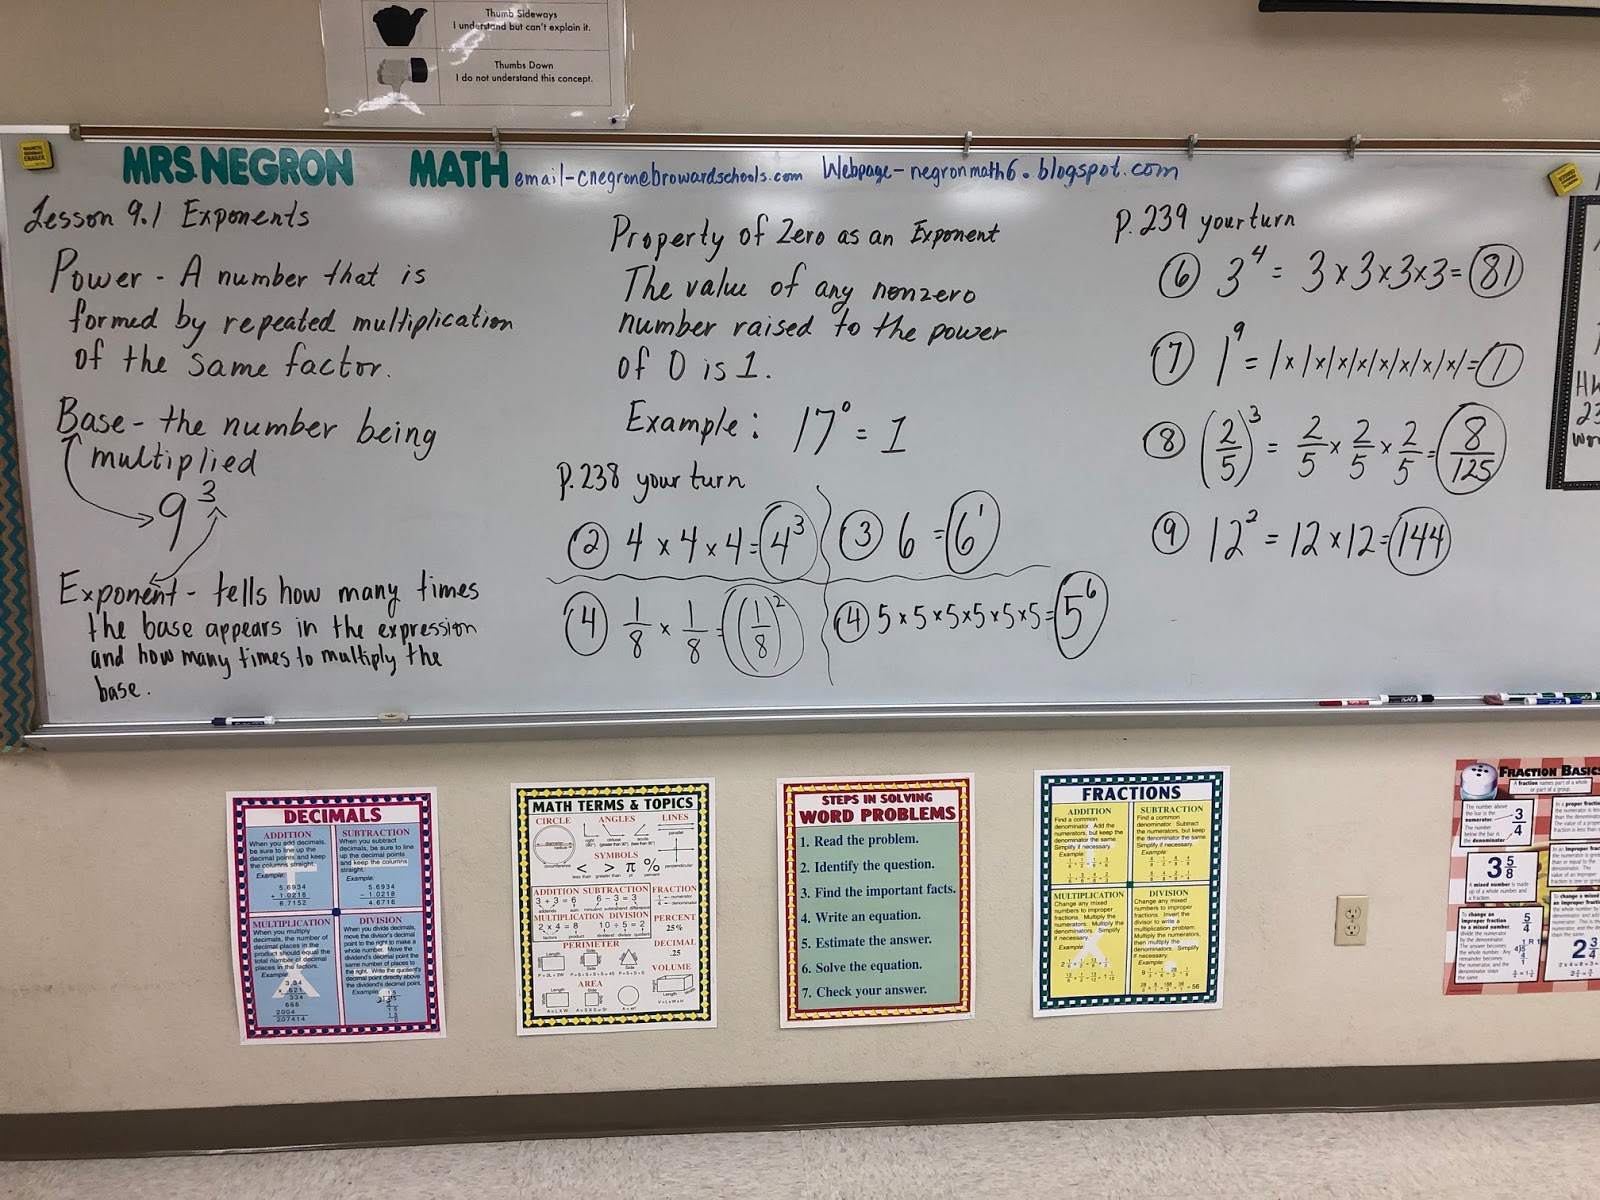 Thumb Sideways
I understand but can't explain it.
Thumbs Down
I do not understand this concept.
MRS. NEGRON MATH email-cnegron@browardschools.com Webpage-negronmath6.blogspot.com
Lesson 9.1 Exponents
Power - A number that is
formed by repeated multiplication
of the same factor.
Base - the number being
multiplied
9³
Exponent - tells how many times
the base appears in the expression
and how many times to multiply the
base.
Property of Zero as an Exponent
The value of any nonzero
number raised to the power
of 0 is 1.
Example: 17⁰ = 1
P. 238 your turn
② 4 × 4 × 4 = 4³
③ 6 = 6¹
④ 1/8 × 1/8 = (1/8)²
④ 5×5×5×5×5×5 = 5⁶
P. 239 your turn
⑥ 3⁴ = 3×3×3×3 = 81
⑦ 1⁹ = 1×1×1×1×1×1×1×1×1 = 1
⑧ (2/5)³ = 2/5 × 2/5 × 2/5 = 8/125
⑨ 12² = 12×12 = 144
DECIMALS
ADDITION
When you add decimals,
be sure to line up the
decimal points and keep
the columns straight.
Example:
5.6934
+ 1.0218
6.7152
SUBTRACTION
When you subtract
decimals, be sure to line
up the decimal points
and keep the columns
straight.
Example:
5.6934
− 1.0218
4.6716
MULTIPLICATION
When you multiply
decimals, the number of
decimal places in the
product should equal the
total number of decimal
places in the factors.
Example:
DIVISION
When you divide decimals,
move the divisor's decimal
point to the right to make a
whole number. Move the
dividend's decimal point
the same number of places to
the right. Write the quotient's
decimal point directly above
the dividend's decimal point.
Example:
MATH TERMS & TOPICS
CIRCLE
ANGLES
LINES
SYMBOLS
< > π %
ADDITION
3 + 3 = 6
SUBTRACTION
6 − 3 = 3
FRACTION
MULTIPLICATION
2 x 4 = 8
DIVISION
10 ÷ 5 = 2
PERCENT
25%
PERIMETER
DECIMAL
.25
AREA
VOLUME
STEPS IN SOLVING
WORD PROBLEMS
1. Read the problem.
2. Identify the question.
3. Find the important facts.
4. Write an equation.
5. Estimate the answer.
6. Solve the equation.
7. Check your answer.
FRACTIONS
ADDITION
Find a common
denominator. Add the
numerators, but keep the
denominator the same.
Simplify if necessary.
Example:
SUBTRACTION
Find a common
denominator. Subtract
the numerators, but keep
the denominator the same.
Simplify if necessary.
Example:
MULTIPLICATION
Change any mixed
numbers to improper
fractions. Multiply the
numerators. Multiply the
denominators. Simplify
if necessary.
Example:
DIVISION
Change any mixed
numbers to improper
fractions. Invert the
divisor to write a
multiplication problem.
Multiply the numerators,
then multiply the
denominators. Simplify
if necessary.
Example:
FRACTION BASICS
A fraction names part of a whole
or part of a group.
The number above
the bar is the
numerator.
The number
below the bar is
the denominator
3/4
3 5/8
A mixed number is made
up of a whole number and
a fraction.
To change an
improper fraction
to a mixed number,
divide the numerator
by the denominator.
5/4
2 3/4